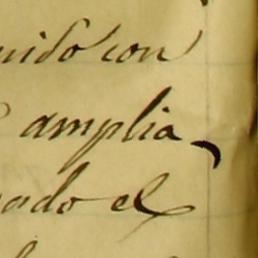 nido con
amplia
ado el